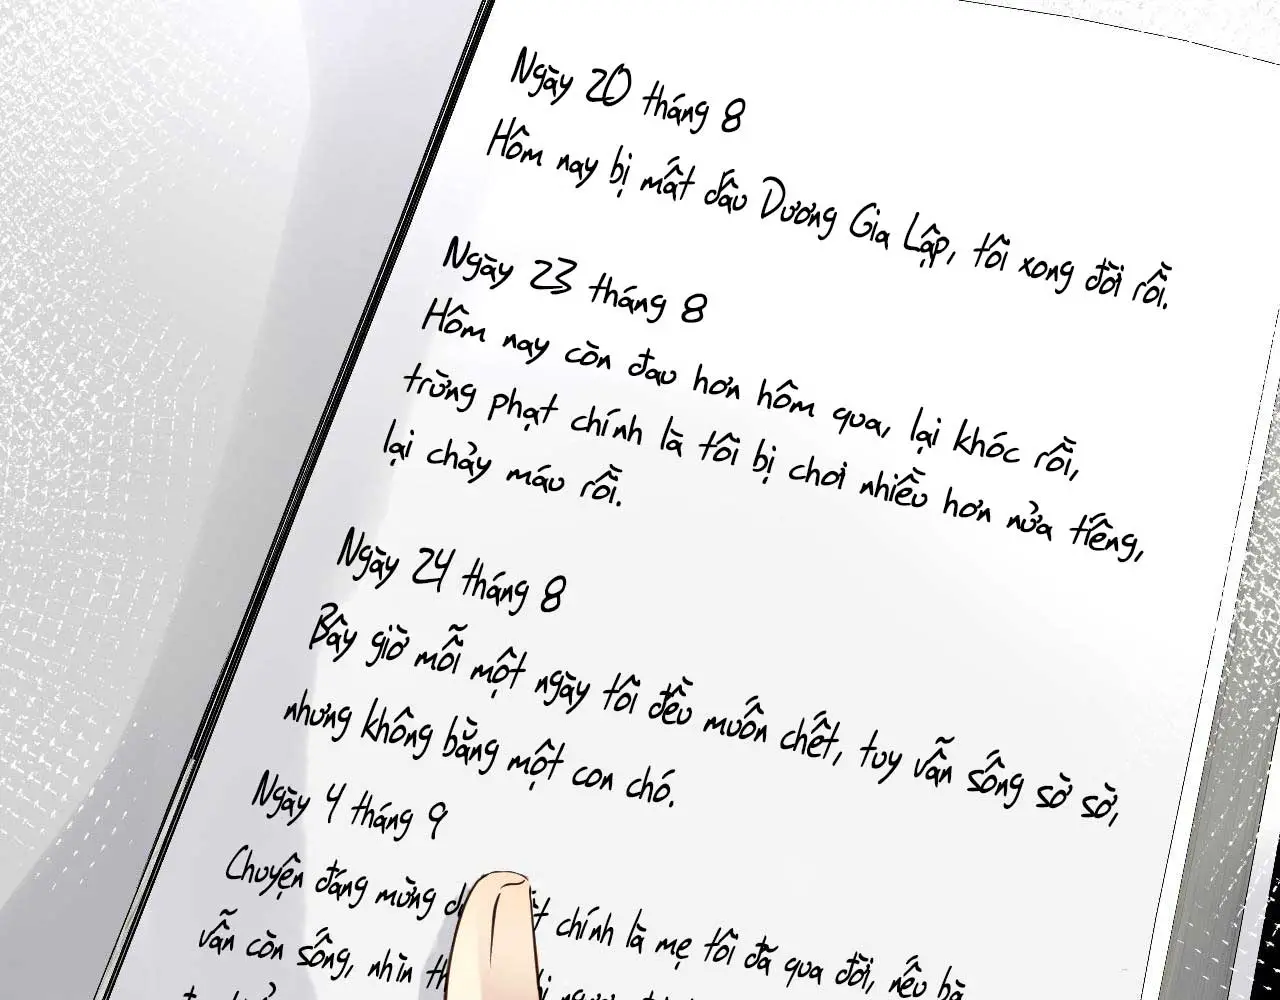 Ngày 20 tháng 8
Hôm nay bị mất dấu Dương Gia Lập, tôi xong đời rồi.
Ngày 23 tháng 8
Hôm nay còn đau hơn hôm qua, lại khóc rồi,
trừng phạt chính là tôi bị chơi nhiều hơn nửa tiếng,
lại chảy máu rồi.
Ngày 24 tháng 8
Bây giờ mỗi một ngày tôi đều muốn chết, tuy vẫn sống sờ sờ,
nhưng không bằng một con chó.
Ngày 4 tháng 9
Chuyện đáng mừng chính là mẹ tôi đã qua đời, nếu bà
vẫn còn sống, nhìn